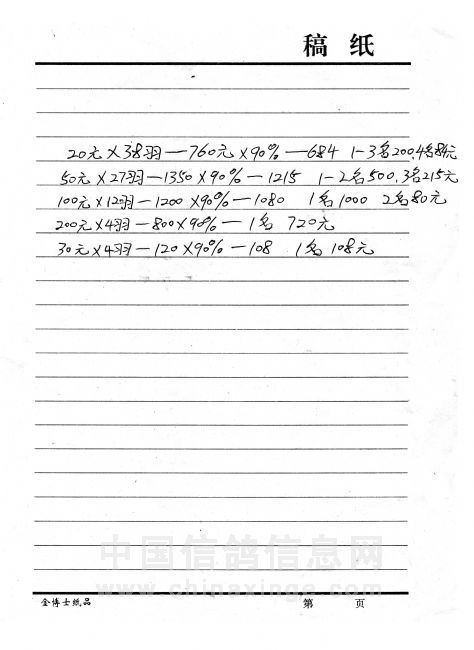 稿 纸
20元×38羽—760元×90%—684 1-3名200.4名84元
50元×27羽—1350×90%—1215 1-2名500.3名215元
100元×12羽—1200×90%—1080 1名1000 2名80元
200元×4羽—800×90%—1名 720元
30元×4羽—120×90%—108 1名 108元
中国信鸽信息网
www.chinaxinge.com
金博士纸品 第 页